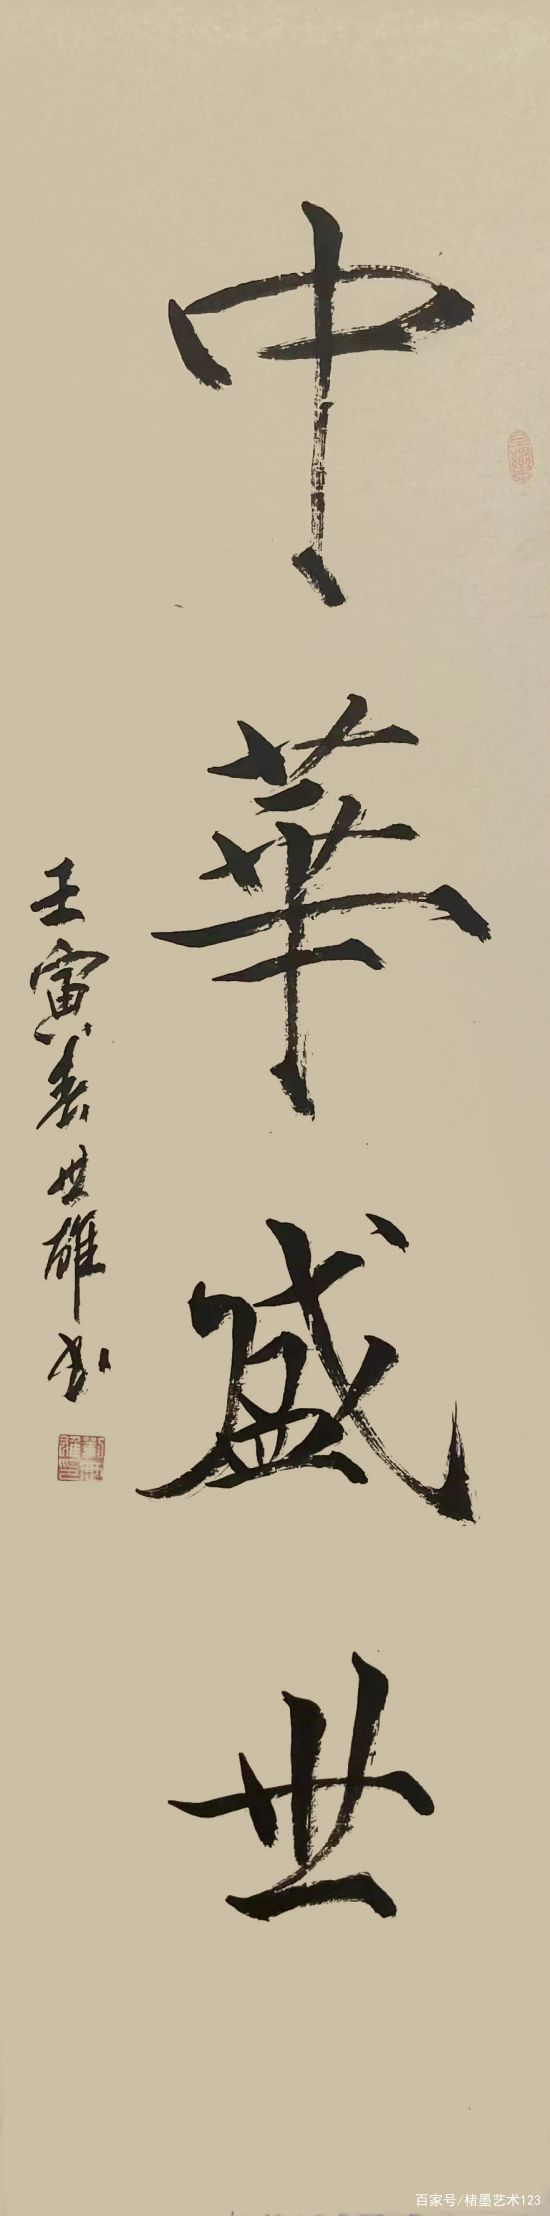 中華盛世
壬寅春世雄书
百家号/楮墨艺术123